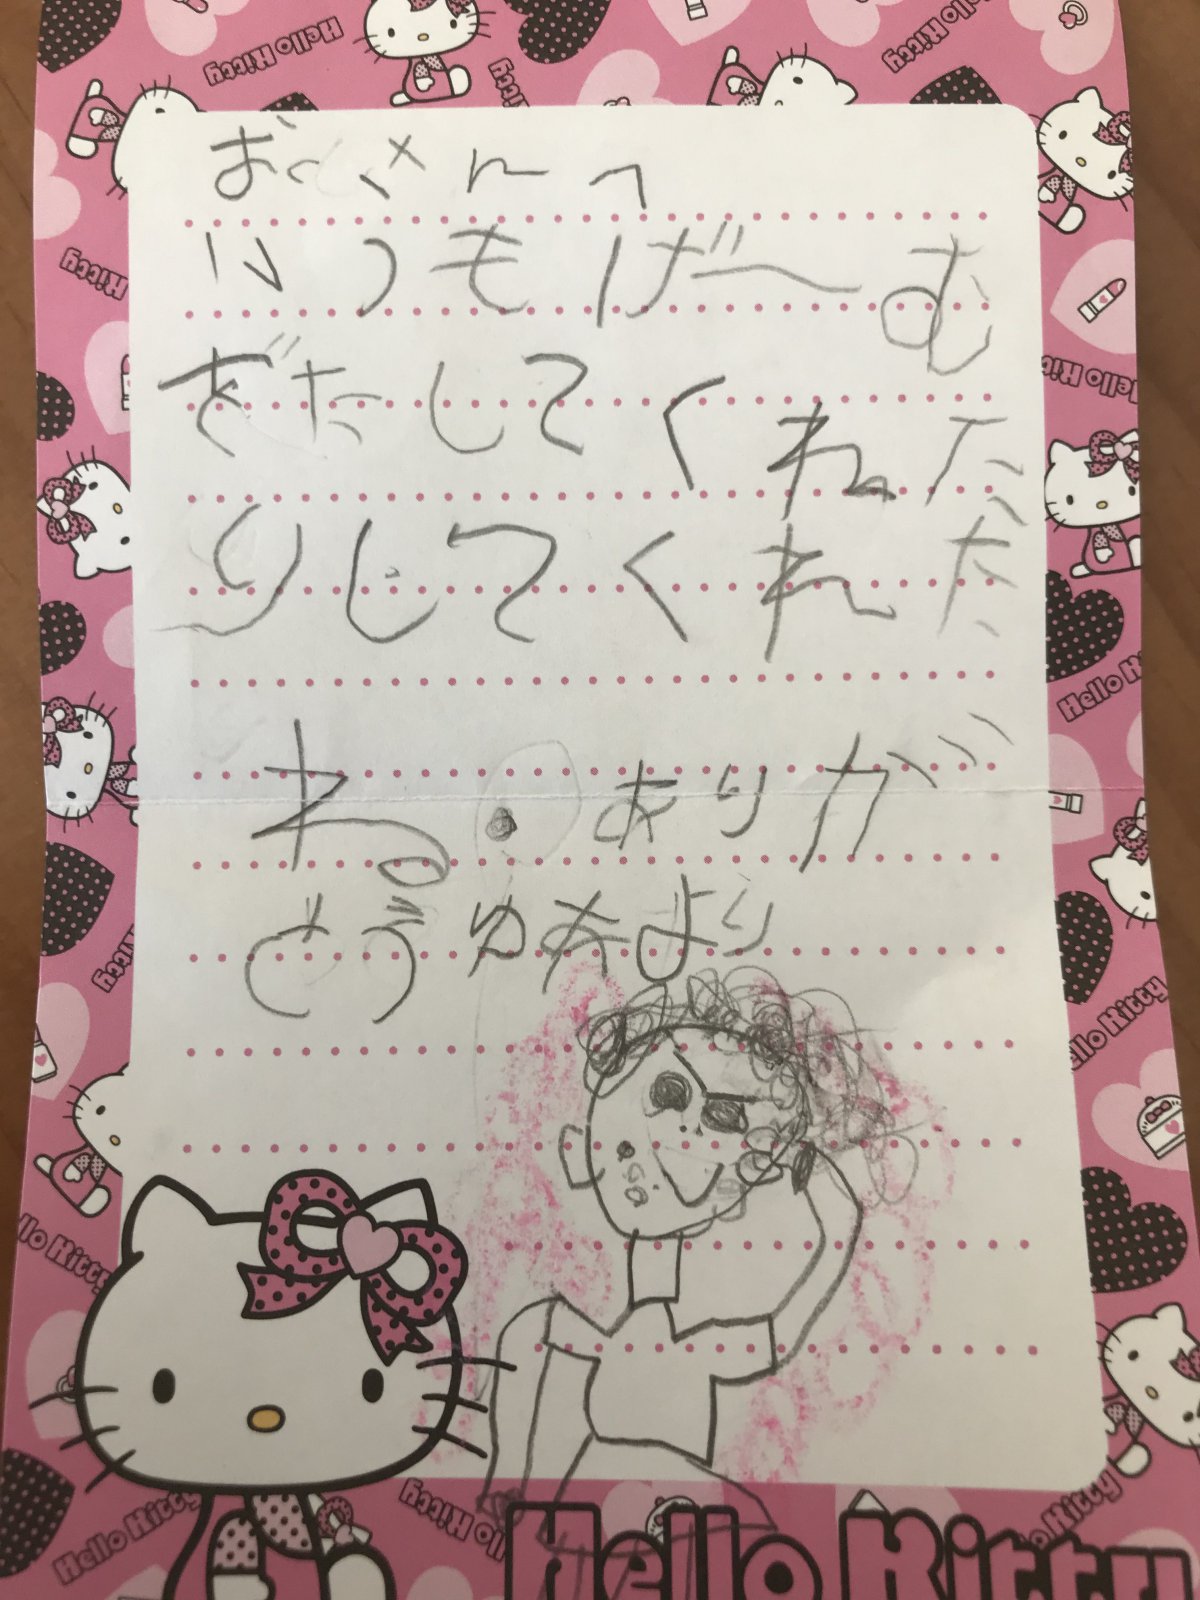 いつもげーむ
をだしてくれた
りしてくれた
ね・ありが
とうゆあより
Hello Kitty